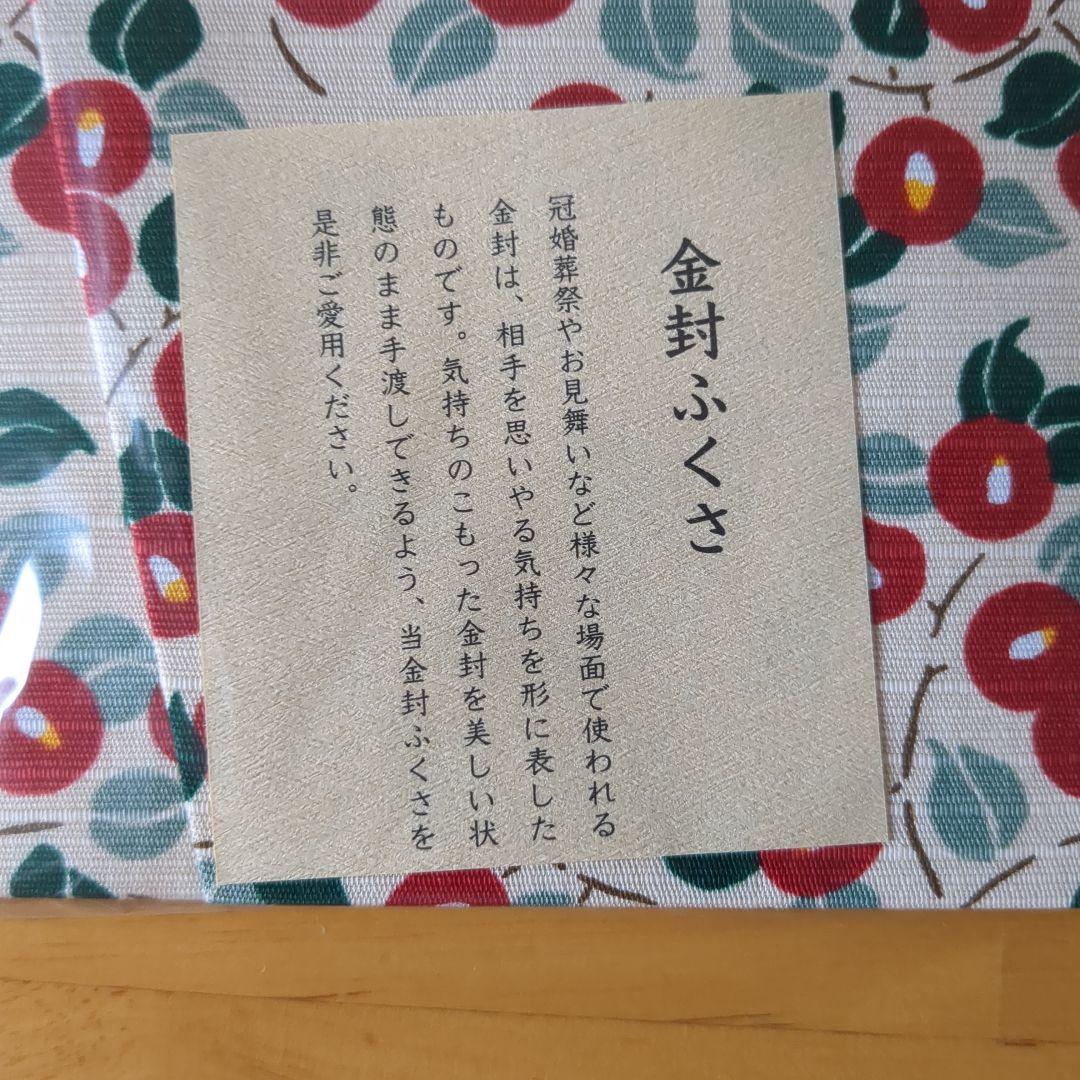 金封ふくさ
冠婚葬祭やお見舞いなど様々な場面で使われる
金封は、相手を思いやる気持ちを形に表した
ものです。気持ちのこもった金封を美しい状
態のまま手渡しできるよう、当金封ふくさを
是非ご愛用ください。